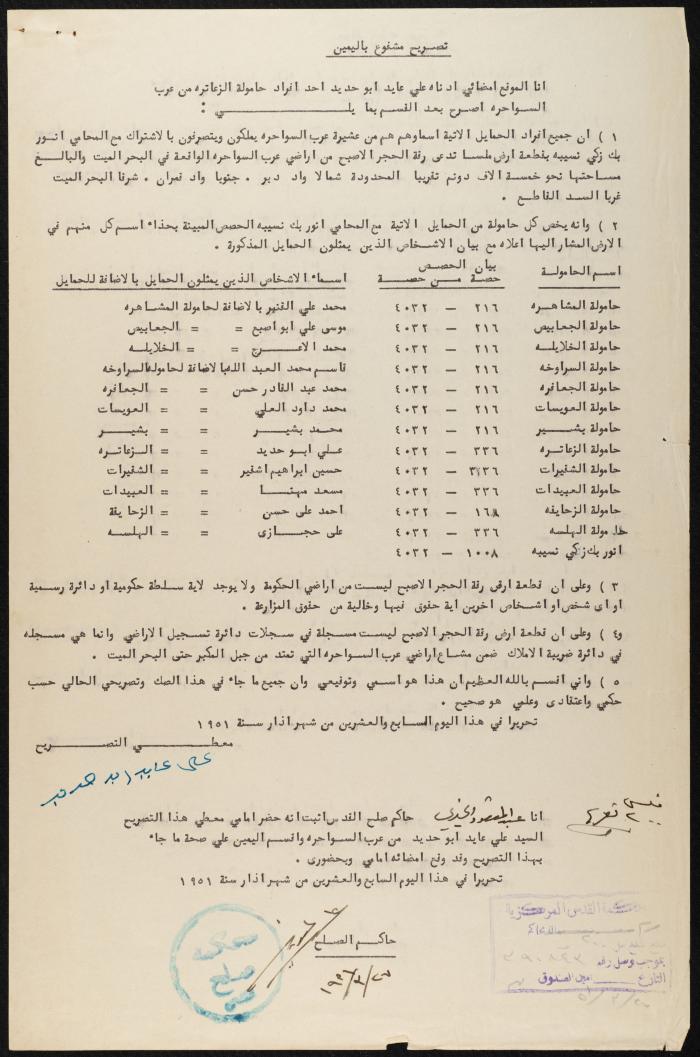 تصريح مشفوع باليمين
انا الموقع امضائي ادناه علي عايد ابو حديد احد افراد حامولة الزعاتره من عرب
السواحره اصرح بعد القسم بما يلـــــي :
١ ) ان جميع افراد الحمايل الاتية اسماوهم هم من عشيرة عرب السواحره يملكون ويتصرفون بالاشتراك مع المحامي انور
بك زكي نسيبه بقطعة ارض ملسا تدعى رقة الحجر الاصبح من اراضي عرب السواحره الواقعة في البحر الميت والبالــغ
مساحتها نحو خمسة الاف دونم تقريبا المحدودة شمالا واد دبر . جنوبا واد قمران . شرقا البحر الميت
غربا السد القاطع .
٢ ) وانه يخص كل حامولة من الحمايل الاتية مع المحامي انور بك نسيبه الحصص المبينة بحذاء اسم كل منهم في
الارض المشار اليها اعلاه مع بيان الاشخاص الذين يمثلون الحمايل المذكورة .
اسم الحامولـة بيان الحصـص اسماء الاشخاص الذين يمثلون الحمايل بالاضافة للحمايل
حصة مــن حصـة
حامولة المشاهره ٢١٦ — ٤٠٣٢ محمد علي القنبر بالاضافة لحامولة المشاهره
حامولة الجعابيص ٢١٦ — ٤٠٣٢ موسى علي ابو اصبع = = الجعابيص
حامولة الخلايله ٢١٦ — ٤٠٣٢ محمد الاعـــرج = = الخلايلـه
حامولة السراوخه ٢١٦ — ٤٠٣٢ قاسم محمد العبد الله بالاضافة لحامولة السراوخه
حامولة الجعافره ٢١٦ — ٤٠٣٢ محمد عبد القادر حسن = = الجعافره
حامولة العويسات ٢١٦ — ٤٠٣٢ محمد داود العلي = = العويسات
حامولة بشــير ٢١٦ — ٤٠٣٢ محمـد بشــير = = بشــير
حامولة الزعاتـره ٣٣٦ — ٤٠٣٢ علـي ابـو حديد = = الزعاتره
حامولة الشقيرات ٣٣٦ — ٤٠٣٢ حسين ابراهيم اشقير = = الشقيرات
حامولة العبيدات ٣٣٦ — ٤٠٣٢ مسعد مهنــا = = العبيدات
حامولة الزحايقه ١٦٨ — ٤٠٣٢ احمد علي حسن = = الزحايقة
حامولة الهلسه ٣٣٦ — ٤٠٣٢ على حجــازى = = الهلسـه
انور بك زكي نسيبه ١٠٠٨ — ٤٠٣٢
٣ ) وعلى ان قطعة ارض رقة الحجر الاصبح ليست من اراضي الحكومة ولا يوجد لاية سلطة حكومية او دائرة رسمية
او اى شخص او اشخاص اخرين اية حقوق فيها وخالية من حقوق المزارعة .
و٤ ) وعلى ان قطعة ارض رقة الحجر الاصبح ليست مسجلة في سجلات دائرة تسجيل الاراضي وانما هي مسجله
في دائرة ضريبة الاملاك ضمن مشاع اراضي عرب السواحره التي تمتد من جبل المكبر حتى البحر الميت .
٥ ) واني اقسم بالله العظيم ان هذا هو اسمي وتوقيعي وان جميع ما جاء في هذا الصك وتصريحي الحالي حسب
حكمي واعتقادى وعلمي هو صحيح .
تحريرا في هذا اليوم السابع والعشرين من شهر اذار سنة ١٩٥١
معطــي التصــريح
علي عايد ابو حديد
انا حاكم صلح القدس اثبت انه حضر امامي معطي هذا التصريح
السيد علي عايد ابو حديد من عرب السواحره واقسم اليمين علي صحة ما جاء
بهذا التصريح وقد وقع امضائه امامي وبحضورى .
تحريرا في هذا اليوم السابع والعشرين من شهر اذار سنة ١٩٥١
حاكم الصلح
محكمة صلح
محكمة القدس المركزية
بموجب وصل رقم
التاريخ امين الصندوق